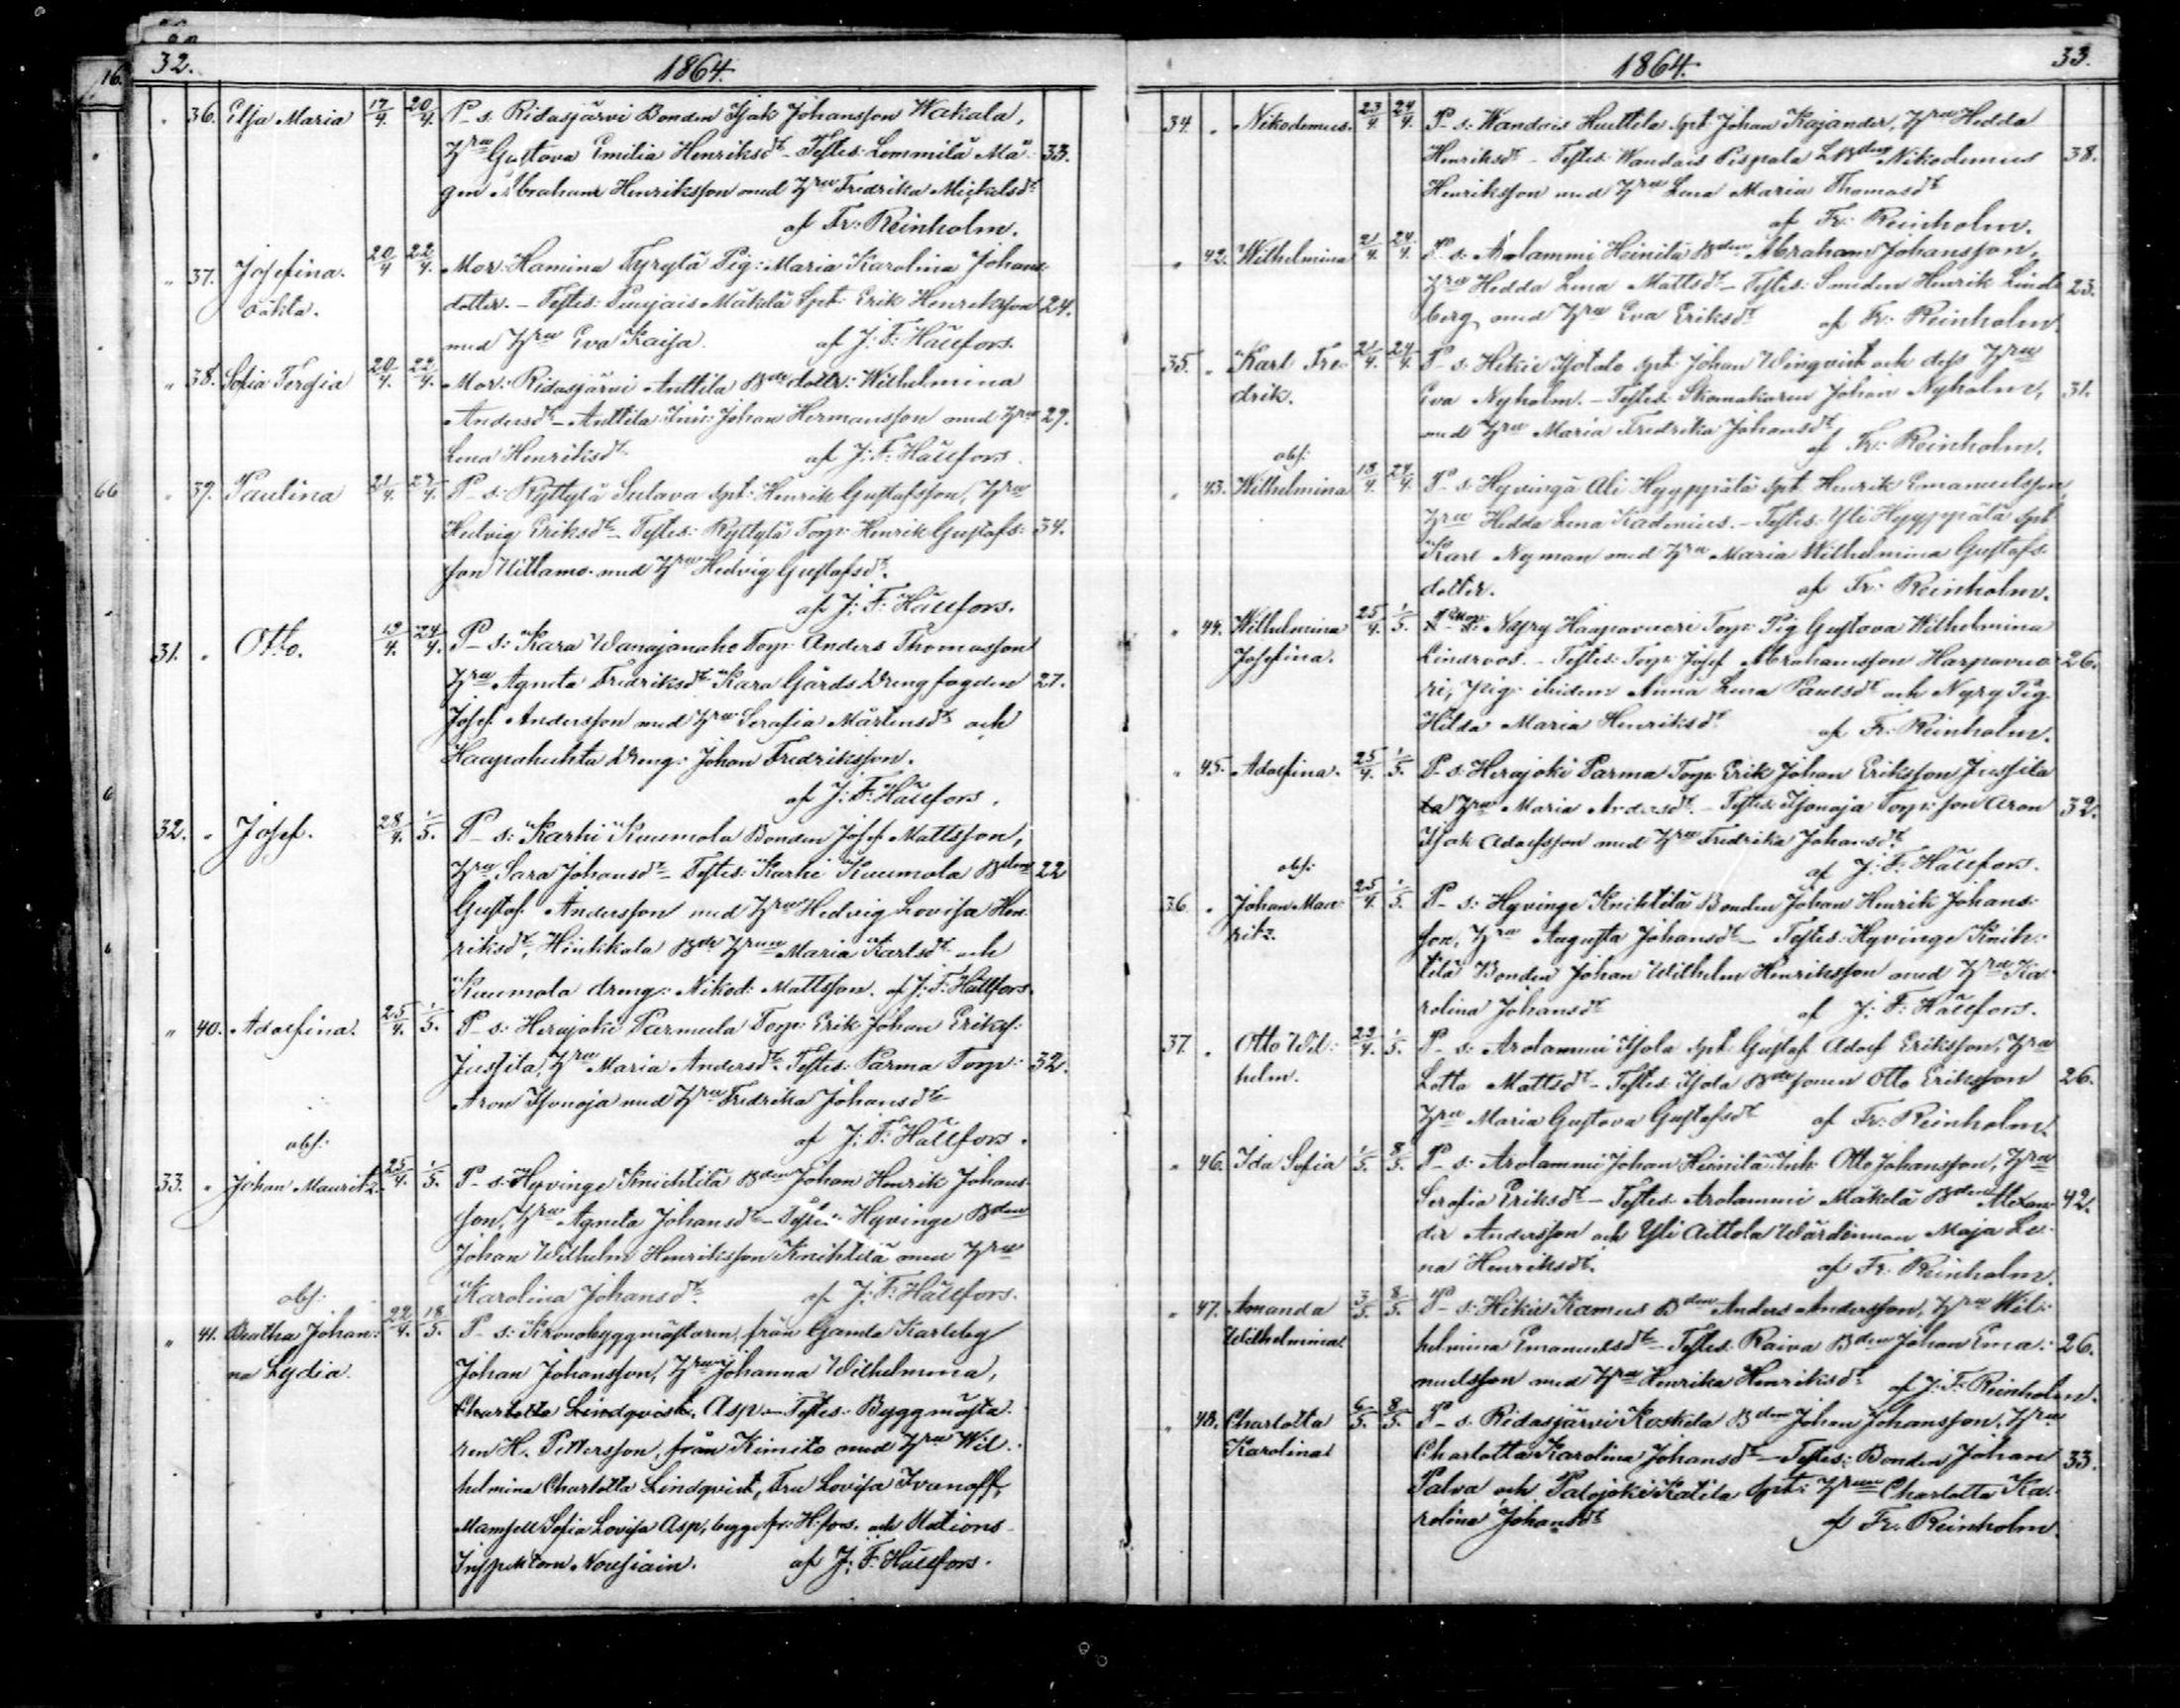 32. 1864.
36. Elsa Maria 17/4. 20/4. P. s. Ridasjärvi Bonden Isak Johansson Wakala,
Hru Gustava Emilia Henriksdr – Testes: Lemmilä Mä- 33.
gen Abraham Henriksson med Hru Fredrika Mickelsdr
af Fr: Reinholm.
" 37. Josefina. 20/4 22/4. Mor: Hamina Tyrylä Pig: Maria Karolina Johans-
oäkta. dotter. – Testes: Mäkelä Spt Erik Henriksson 24.
med Hru Eva Kaisa. af J: F: Hällfors.
" 38. Sofia 20/4. 22/4. Mor: Ridasjärvi Anttila Bde dottr: Wilhelmina
Andersdr – Anttila Inh: Johan Hermansson med Hru 29.
Lena Henriksdr af J: F: Hällfors.
" 39. Paulina 21/4. P. s: Ryttylä Sulava Spt: Henrik Gustafsson, Hru
Hedvig Eriksdr – Testes: Ryttylä Torp: Henrik Gustafs- 34.
son Uittamo med Hru Hedvig Gustafsdr.
af J: F: Hällfors.
31. " Otto. 19/4. 24/4. P. s: Kara Wanajanaho Torp: Anders Thomasson
Hru Agneta Fredriksdr Kara Gårds Drengfogden 27.
Josef Andersson med Hru Serafia Mårtensdr och
Haapahuhta Dreng: Johan Fredriksson.
af J: F: Hällfors.
32. " Josef. 28/4. 1/5. P. s: Karhi Kuumola Bonden Josef Mattsson,
Hru Sara Johansdr – Testes: Karhi Kuumola Bden 22
Gustaf Andersson med Hru Hedvig Lovisa Hen-
riksdr, Hirtikala Bde Hrun Maria Karlsdr och
Kuumola dreng: Nikod: Mattsson. af J: F: Hällfors.
" 40. Adolfina. 25/4. 1/5. P. s: Herajoki Parmula Torp: Erik Johan Eriks:
Jussila, Hru Maria Andersdr. Testes: Parma Torp: 32.
Aron Isonoja med Hru Fredrika Johansdr
obs: af J: F: Hällfors.
33. " Johan Mauritz. 25/4. 1/5. P. s: Hyvinge Knichtilä Bden Johan Henrik Johans-
son, Hru Agneta Johansdr – Testes: Hyvinge Bden
Johan Wilhelm Henriksson Knihtilä med Hru
obs: Karolina Johansdr. af J: F: Hällfors.
" 41. Beatha Johan- 22/4. 18/5. P. s: Kronobyggmästaren, från Gamla Karleby
na Lydia. Johan Johansson, Hrun Johanna Wilhelmina,
Charlotta Lindqvist, Asp. – Testes: Byggmästa-
ren H. Pettersson, från Kimito med Hru Wil-
helmina Charlotta Lindqvist, Fru Lovisa Ivanoff,
Mamsell Sofia Lovisa Asp, begge fr: H:fors. och Stations
Inspektorn Nousiain. af J: F: Hällfors.
1864. 33.
34. " Nikodemus. 23/4. 24/4. P. s: Wandais Huttila Spt: Johan Kajander, Hru Hedda
Henriksdr – Testes: Wandais Pispala LBden Nikodemus 38.
Henriksson med Hru Lena Maria Thomasdr
af Fr: Reinholm.
" 42. Wilhelmina 21/4. 24/4. P. s: Arolammi Heinilä Bden Abraham Johansson,
Hru Hedda Lena Mattsdr – Testes: Smeden Henrik Lind- 23.
berg med Hru Eva Eriksdr af Fr: Reinholm.
35. " Karl Fre- 21/4. 24/4. P. s: Hikie Isotalo Spt: Johan Wingvist och dess Hru
drik. Eva Nyholm. – Testes: Skomakaren Johan Nyholm, 31.
med Hru Maria Fredrika Johansdr
obs: af Fr: Reinholm.
" 43. Wilhelmina 18/4. 24/4. P. s: Hyvingä Ali Hyyppärä Spt: Henrik Emanuelsson,
Hru Hedda Lena Kadenius. – Testes: Yli Hyyppärä Spt
Karl Nyman med Hru Maria Wilhelmina Gustafs-
dotter. af Fr: Reinholm.
" 44. Wilhelmina 25/4. 1/5. Mor: Nyry Haapavuori Torp: Pig Gustava Wilhelmina
Josefina. Lindroos. – Testes: Torp: Josef Abrahamsson Harpavuo- 26.
ri, Pig: ibidem Anna Lena Paulsdr och Nyry Pig
Hilda Maria Henriksdr af Fr: Reinholm.
" 45. Adolfina. 25/4. 1/5. P. s: Herajoki Parma Torp: Erik Johan Eriksson Jussila
Hru Maria Andersdr. – Testes: Isonoja Torp: son Aron 32.
Isak Adolfsson med Hru Fredrika Johansdr.
obs: af J: F: Hällfors.
36. " Johan Mau- 25/4. 1/5. P. s: Hyvinge Knihtilä Bonden Johan Henrik Johans-
ritz. son, Hru Augusta Johansdr – Testes: Hyvinge Knih-
tilä Bonden Johan Wilhelm Henriksson med Hru Ka-
rolina Johansdr af J: F: Hällfors.
37. " Otto Wil- 22/4. 1/5. P. s: Arolammi Isola Spt: Gustaf Adolf Eriksson, Hru
helm. Lotta Mattsdr – Testes: Isola Bde sonen Otto Eriksson 26.
Hru Maria Gustava Gustafsdr af Fr: Reinholm.
" 46. Ida Sofia 1/5. 8/5. P. s: Arolammi Johan Heinilä Inh: Otto Johansson, Hru
Serafia Eriksdr – Testes: Arolammi Mäkelä Bden Alexan- 42.
der Andersson och Yli Aittola Wärdinnan Maja Le-
na Henriksdr. af Fr: Reinholm.
" 47. Amanda 3/5. 8/5. P. s: Hikie Kamus Bden Anders Andersson, Hru Wil-
Wilhelmina helmina Emanuelsdr – Testes: Raiva Bden Johan Ema- 26.
nuelsson med Hru Henrika Henriksdr af J: F: Reinholm.
" 48. Charlotta 6/5. 8/5. P. s. Ridasjärvi Koskela Bden Johan Johansson, Hru
Karolina Charlotta Karolina Johansdr – Testes: Bonden Johan 33.
Palva och Palojoki Katila Spt: Hrun Charlotta Ka-
rolina Johansdr af Fr: Reinholm